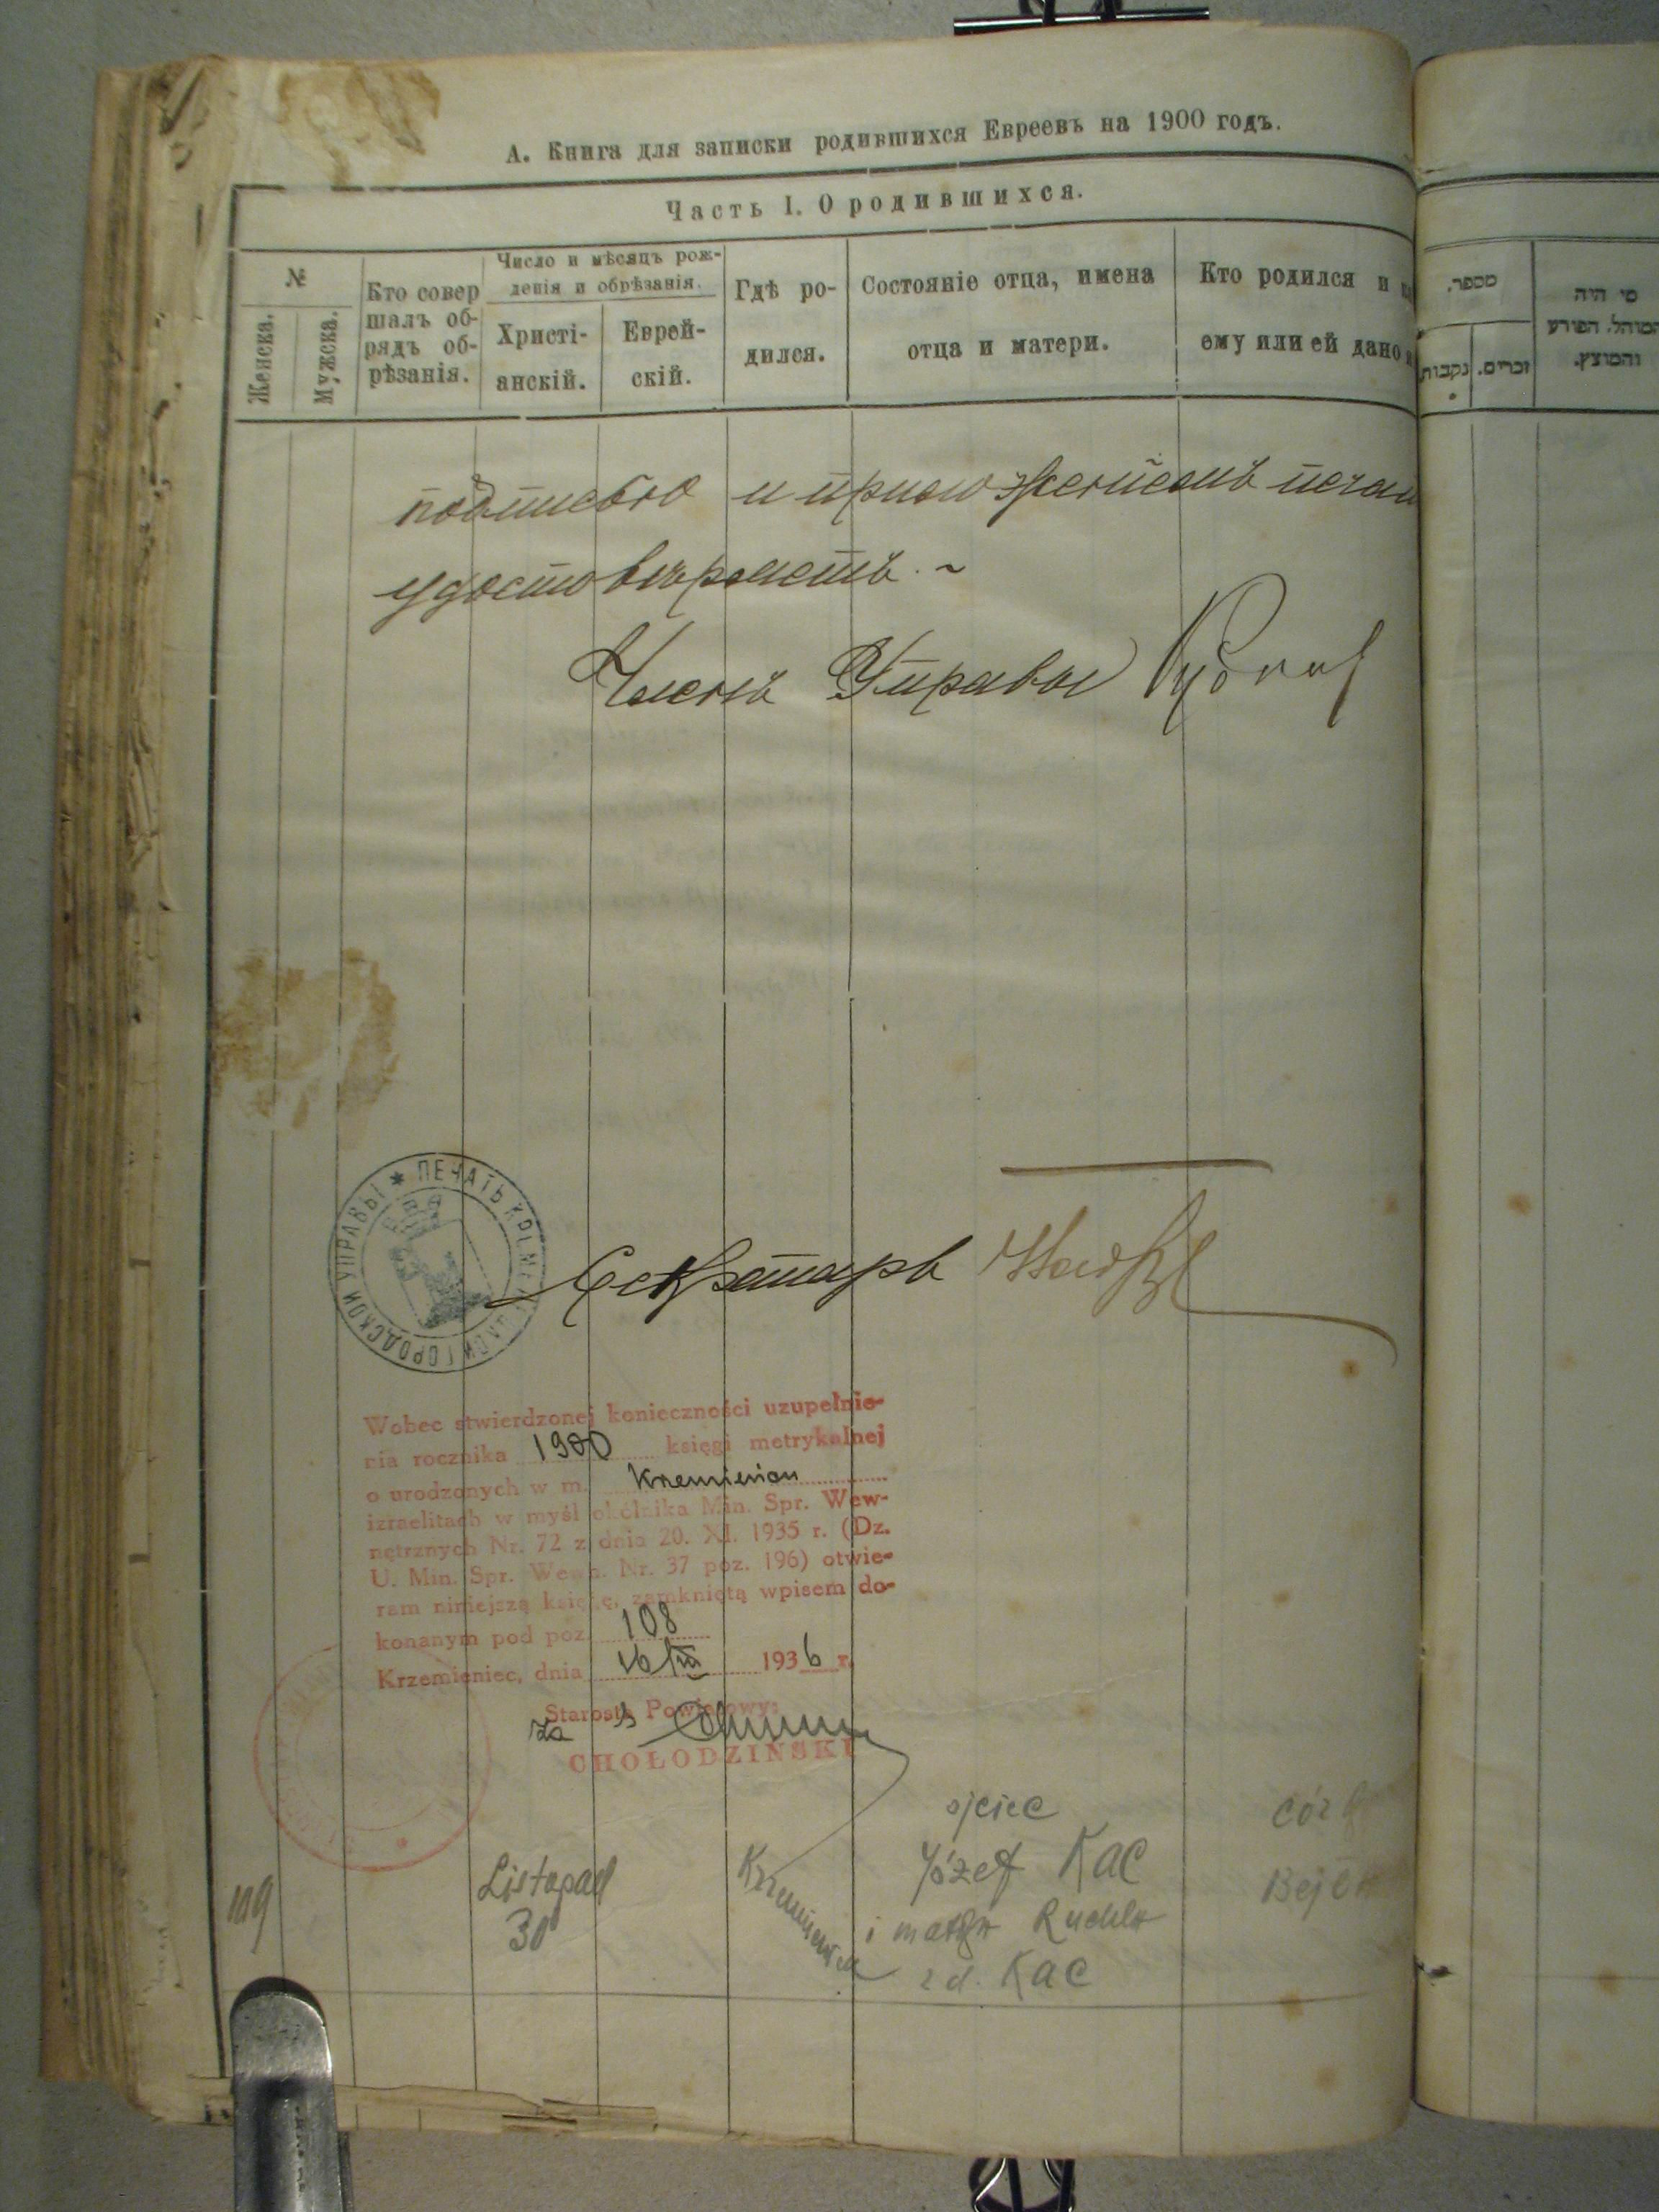 А. Книга для записки родившихся Евреевъ на 1900 годъ.
Часть I. О родившихся.
№
Женска.
Мужска.
Кто совер
шалъ об-
рядъ об-
рѣзанія.
Число и мѣсяцъ рож-
денія и обрѣзанія.
Христі-
анскій.
Еврей-
скій.
Гдѣ ро-
дился.
Состояніе отца, имена
отца и матери.
Кто родился и
ему или ей дано
מספר.
נקבות.
זכרים.
מי היה
המוהל, הפורע
והמוצץ.
подписью и приложеніемъ печати
удостовѣряетъ. ~
Членъ Управы
ПЕЧАТЬ ГОРОДСКОЙ УПРАВЫ
Секретарь
Wobec stwierdzonej konieczności uzupełnie-
nia rocznika 1900 księgi metrykalnej
o urodzonych w m. Kremieniou
izraelitach w myśl okólnika Min. Spr. Wew-
nętrznych Nr. 72 z dnia 20. XI. 1935 r. (Dz.
U. Min. Spr. Wewn. Nr. 37 poz. 196) otwie-
ram niniejszą księgę, zamkniętą wpisem do-
konanym pod poz. 108
Krzemieniec, dnia 16/XII 1936 r.
Starosta Powiatowy:
za
CHOŁODZIŃSKI
109
Listopad
30
Krzemieniec
ojciec
Józef Kac
i matka Ruchla
z d. Kac